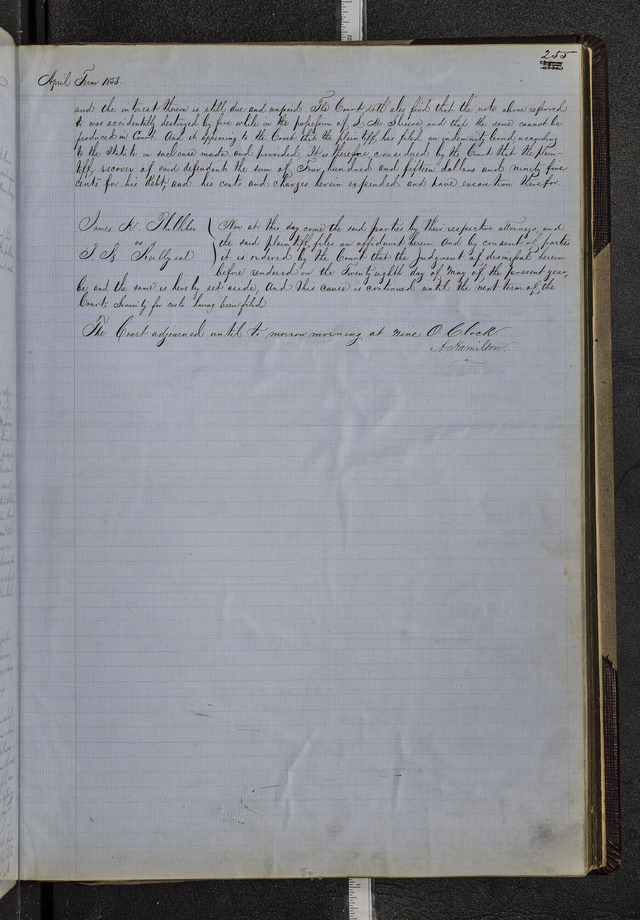 255
April Term 1853.
and the interest thereon is still due and unpaid. The Court doth also find that the note above referred
to was accidentally destroyed by fire while in the possession of S. M. and that the same cannot be
produced in Court. And it appearing to the Court that the plaintiff has filed an indemnity bond, according
to the Statute in such case made and provided. It is therefore considered by the Court that the plain-
tiff, recover of said defendant the sum of Four hundred and fifteen dollars and ninety five
cents for his debt, and his costs and charges herein expended and have execution therefor
James H. Now at this day come the said parties by their respective attorneys, and
vs the said plaintiff files an affidavit herein. And by consent of parties
S. N. it is ordered by the Court that the Judgment of dismissal herein
before rendered on the Twenty eighth day of May of the present year,
be, and the same is hereby set aside, And this cause is continued until the next term of the
Court; Security for costs having been filed
The Court adjourned until to morrow morning at nine O Clock
A. Hamilton.